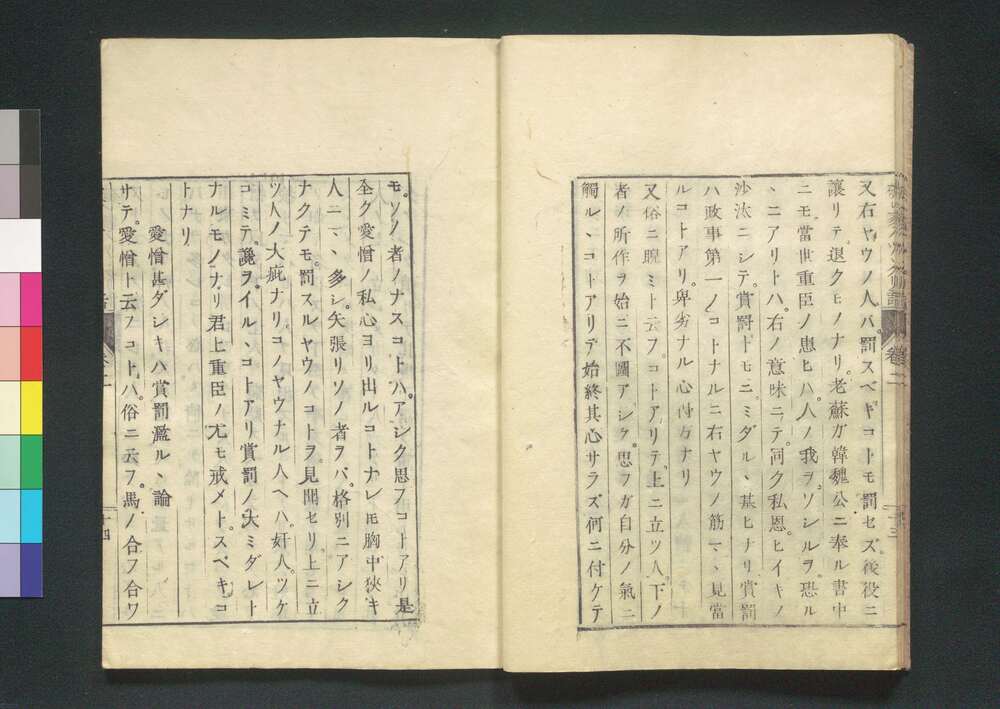 又右ヤウノ人バ。罰スベキコトモ罰セズ後役ニ
讓リテ退クモノナリ。老蘇ガ韓魏公ニ奉ル書中
ニモ當世重臣ノ患ヒハ。人ノ我ヲソシルヲ。恐ル
ヽニアリトハ。右ノ意味ニテ。同ク私恩。ヒイキノ
沙汰ニシテ。賞罰トモニミダルヽ基ヒナリ賞罰
ハ政事第一ノコトナルニ右ヤウノ筋マヽ見當
ルコトアリ。卑劣ナル心得方ナリ
又俗ニ睨ミト云フ。コトアリテ。上ニ立ツ人。下ノ
者ノ所作ヲ始ニ不圖アシク。思フガ自分ノ氣ニ
觸ルヽコトアリテ始終其心サラズ何ニ付ケテ
卷二
十三
モ。ソノ者ノナスコトハ。アシク思フコトアリ是
全ク愛憎ノ私心ヨリ出ルコトナレ𪜈胸中狹キ
人ニマヽ多シ。矢張リソノ者ヲバ。格別ニアシク
ナクテモ。罰スルヤウノコトヲ。見聞セリ上ニ立
ツ人ノ大疵ナリ。コノヤウナル人ヘハ。奸人。ツケ
コミテ。讒ヲ。イルヽコトアリ賞罰ノ大ミダレト
ナルモノナリ君上重臣ノ尤モ戒メト。スベキコ
トナリ
愛憎甚ダシキハ賞罰濫ルヽ論
サテ。愛憎ト云フコトハ。俗ニ云フ。馬ノ合フ合ワ
十四